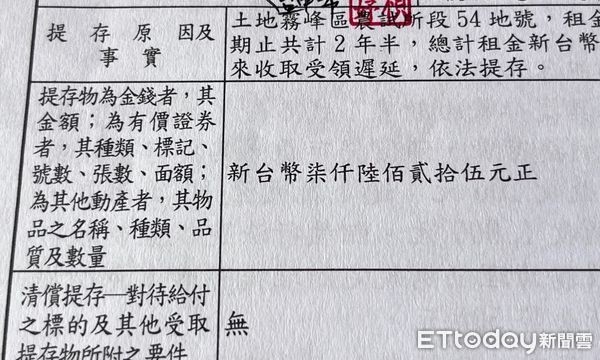 提存原因及
事實
土地霧峰區農試所段54地號，租金
期止共計2年半，總計租金新台幣
來收取受領遲延，依法提存。
提存物為金錢者，其
金額；為有價證券
者，其種類、標記、
號數、張數、面額；
為其他動產者，其物
品之名稱、種類、品
質及數量
新台幣柒仟陸佰貳拾伍元正
清償提存—對待給付
之標的及其他受取
提存物所附之要件
無
ETtoday新聞雲